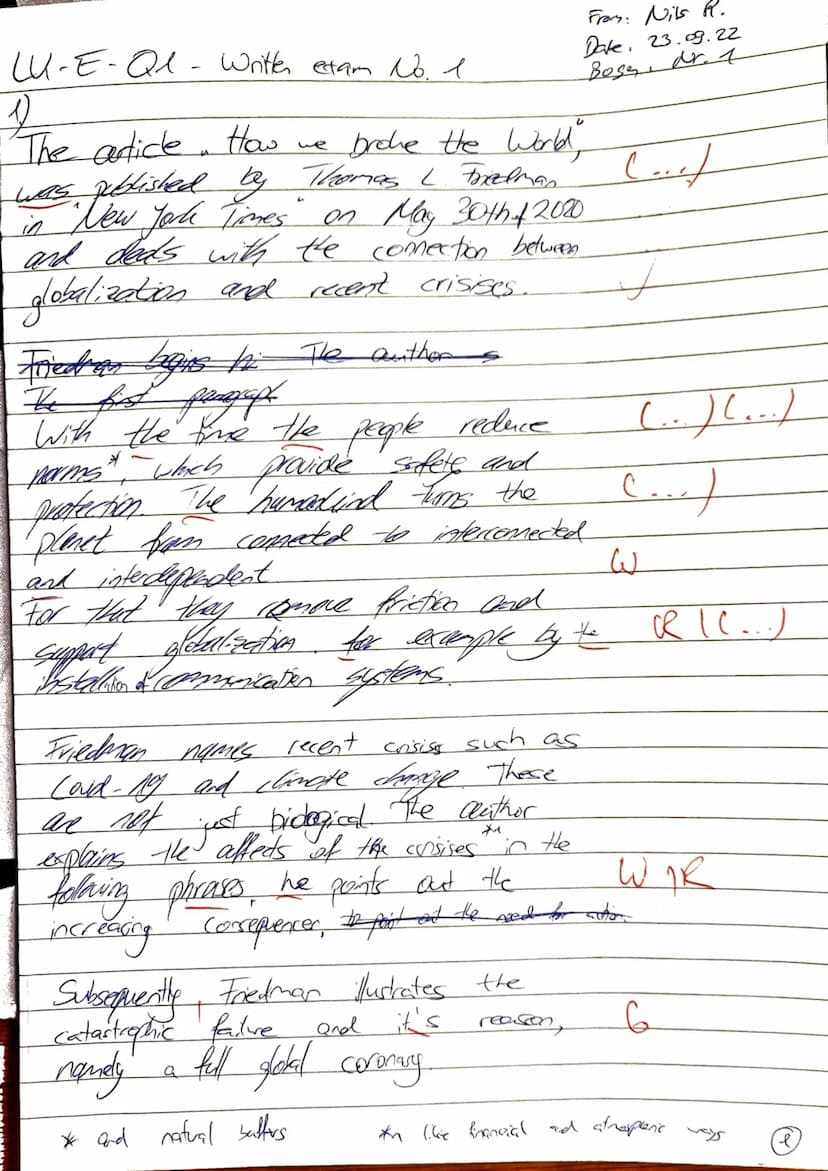 From: Nils R.
Date: 23.09.22
Bogen: Nr. 1
LU-E-Q1 - Written exam No. 1
1)
The article „How we broke the World",
was published by Thomas L Friedman (...)
in "New York Times" on May 30th, 2020
and deals with the connection between
globalization and recent crisises. ✓
Friedman begins hi The author s
The first paragraph
With the time the people reduce (...) (...)
norms*, which provide safety and
protection. The humankind turns the (...)
planet from connected to interconnected
and interdependent W
For that they remove friction and
support globalization. for example by the R | (...)
installation of communication systems.
Friedman names recent crisiss such as
Covid-19 and climate change. These
are not just biological. The author
explains the affects of the crisises** in the
following phrases, he points out the W, R
increasing consequences, to point out the need for action.
Subsequently, Friedman illustrates the
catastrophic failure and it's reason, G
namely a full global coronary.
* and natural buffers
** like financial and atmospheric ways